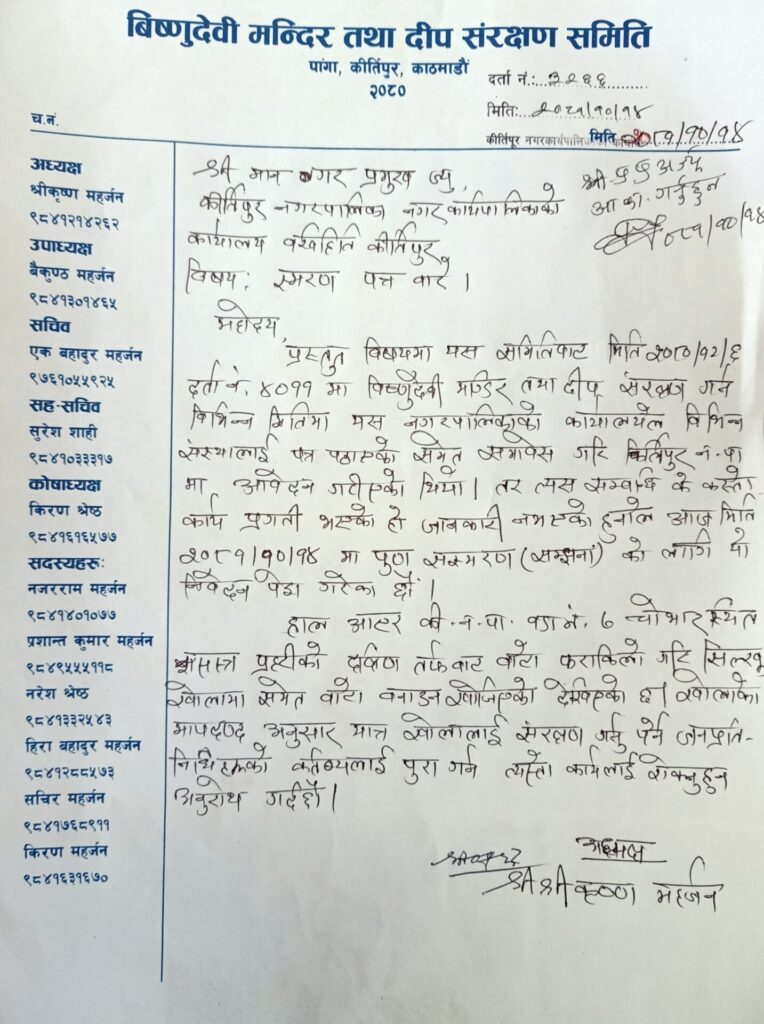 बिष्णुदेवी मन्दिर तथा दीप संरक्षण समिति
पांगा, कीर्तिपुर, काठमाडौं
२०८०
दर्ता नं.: ३२६६
मिति: २०८१/१०/१४
कीर्तिपुर नगरकार्यपालिका
मिति २०८१/१०/१४
च.नं.
श्री
आ.का. गर्नुहुन
२०८१/१०/१४
अध्यक्ष
श्रीकृष्ण महर्जन
९८४१२१४२६२
उपाध्यक्ष
बैकुण्ठ महर्जन
९८४१३०१४६५
सचिव
एक बहादुर महर्जन
९७६१०५५९२५
सह-सचिव
सुरेश शाही
९८४१०३३३१७
कोषाध्यक्ष
किरण श्रेष्ठ
९८४१६१६५७७
सदस्यहरू:
नजरराम महर्जन
९८४१४०१०७७
प्रशान्त कुमार महर्जन
९८४९५५५११८
नरेश श्रेष्ठ
९८४१३३२५४३
हिरा बहादुर महर्जन
९८४१२८८५७३
सचिर महर्जन
९८४१७६८९११
किरण महर्जन
९८४१६३१६७०
श्री मान नगर प्रमुख ज्यु,
कीर्तिपुर नगरपालिका नगर कार्यपालिकाको
कार्यालय कीर्तिपुर,
विषय: स्मरण पत्र बारे ।
महोदय,
प्रस्तुत विषयमा यस समितिबाट मिति २०८०/१२/६
दर्ता नं. ४०११ मा विष्णुदेवी मन्दिर तथा दीप संरक्षण गर्न
विभिन्न मितिमा यस नगरपालिकाको कार्यालयले विभिन्न
संस्थालाई पत्र पठाएको समेत समावेस गरि किर्तिपुर न.पा
मा आवेदन गरीएको थियो । तर त्यस सम्बन्धि के कस्तो
कार्य प्रगती भएको हो जानकारी नभएको हुनाले आज मिति
२०८१/१०/१४ मा पुण संस्मरण (सम्झना) को लागि यो
निवेदन पेश गरेका छौं ।
हाल आएर की.न.पा. वडा नं. ७ चोभार स्थित
प्रहरीको दक्षिण तर्फ बाट बाटो फराकिलो गरि सिल्खु
खोलामा समेत बाटो बनाउन खोजिएको देखिएको छ । खोलाको
मापदण्ड अनुसार खोलालाई संरक्षण गर्नु पर्ने जनप्रति-
निधिहरूको कर्तव्यलाई पुरा गर्न त्यस्तो कार्यलाई रोक्नुहुन
अनुरोध गर्दछौं ।
अध्यक्ष
श्री श्रीकृष्ण महर्जन